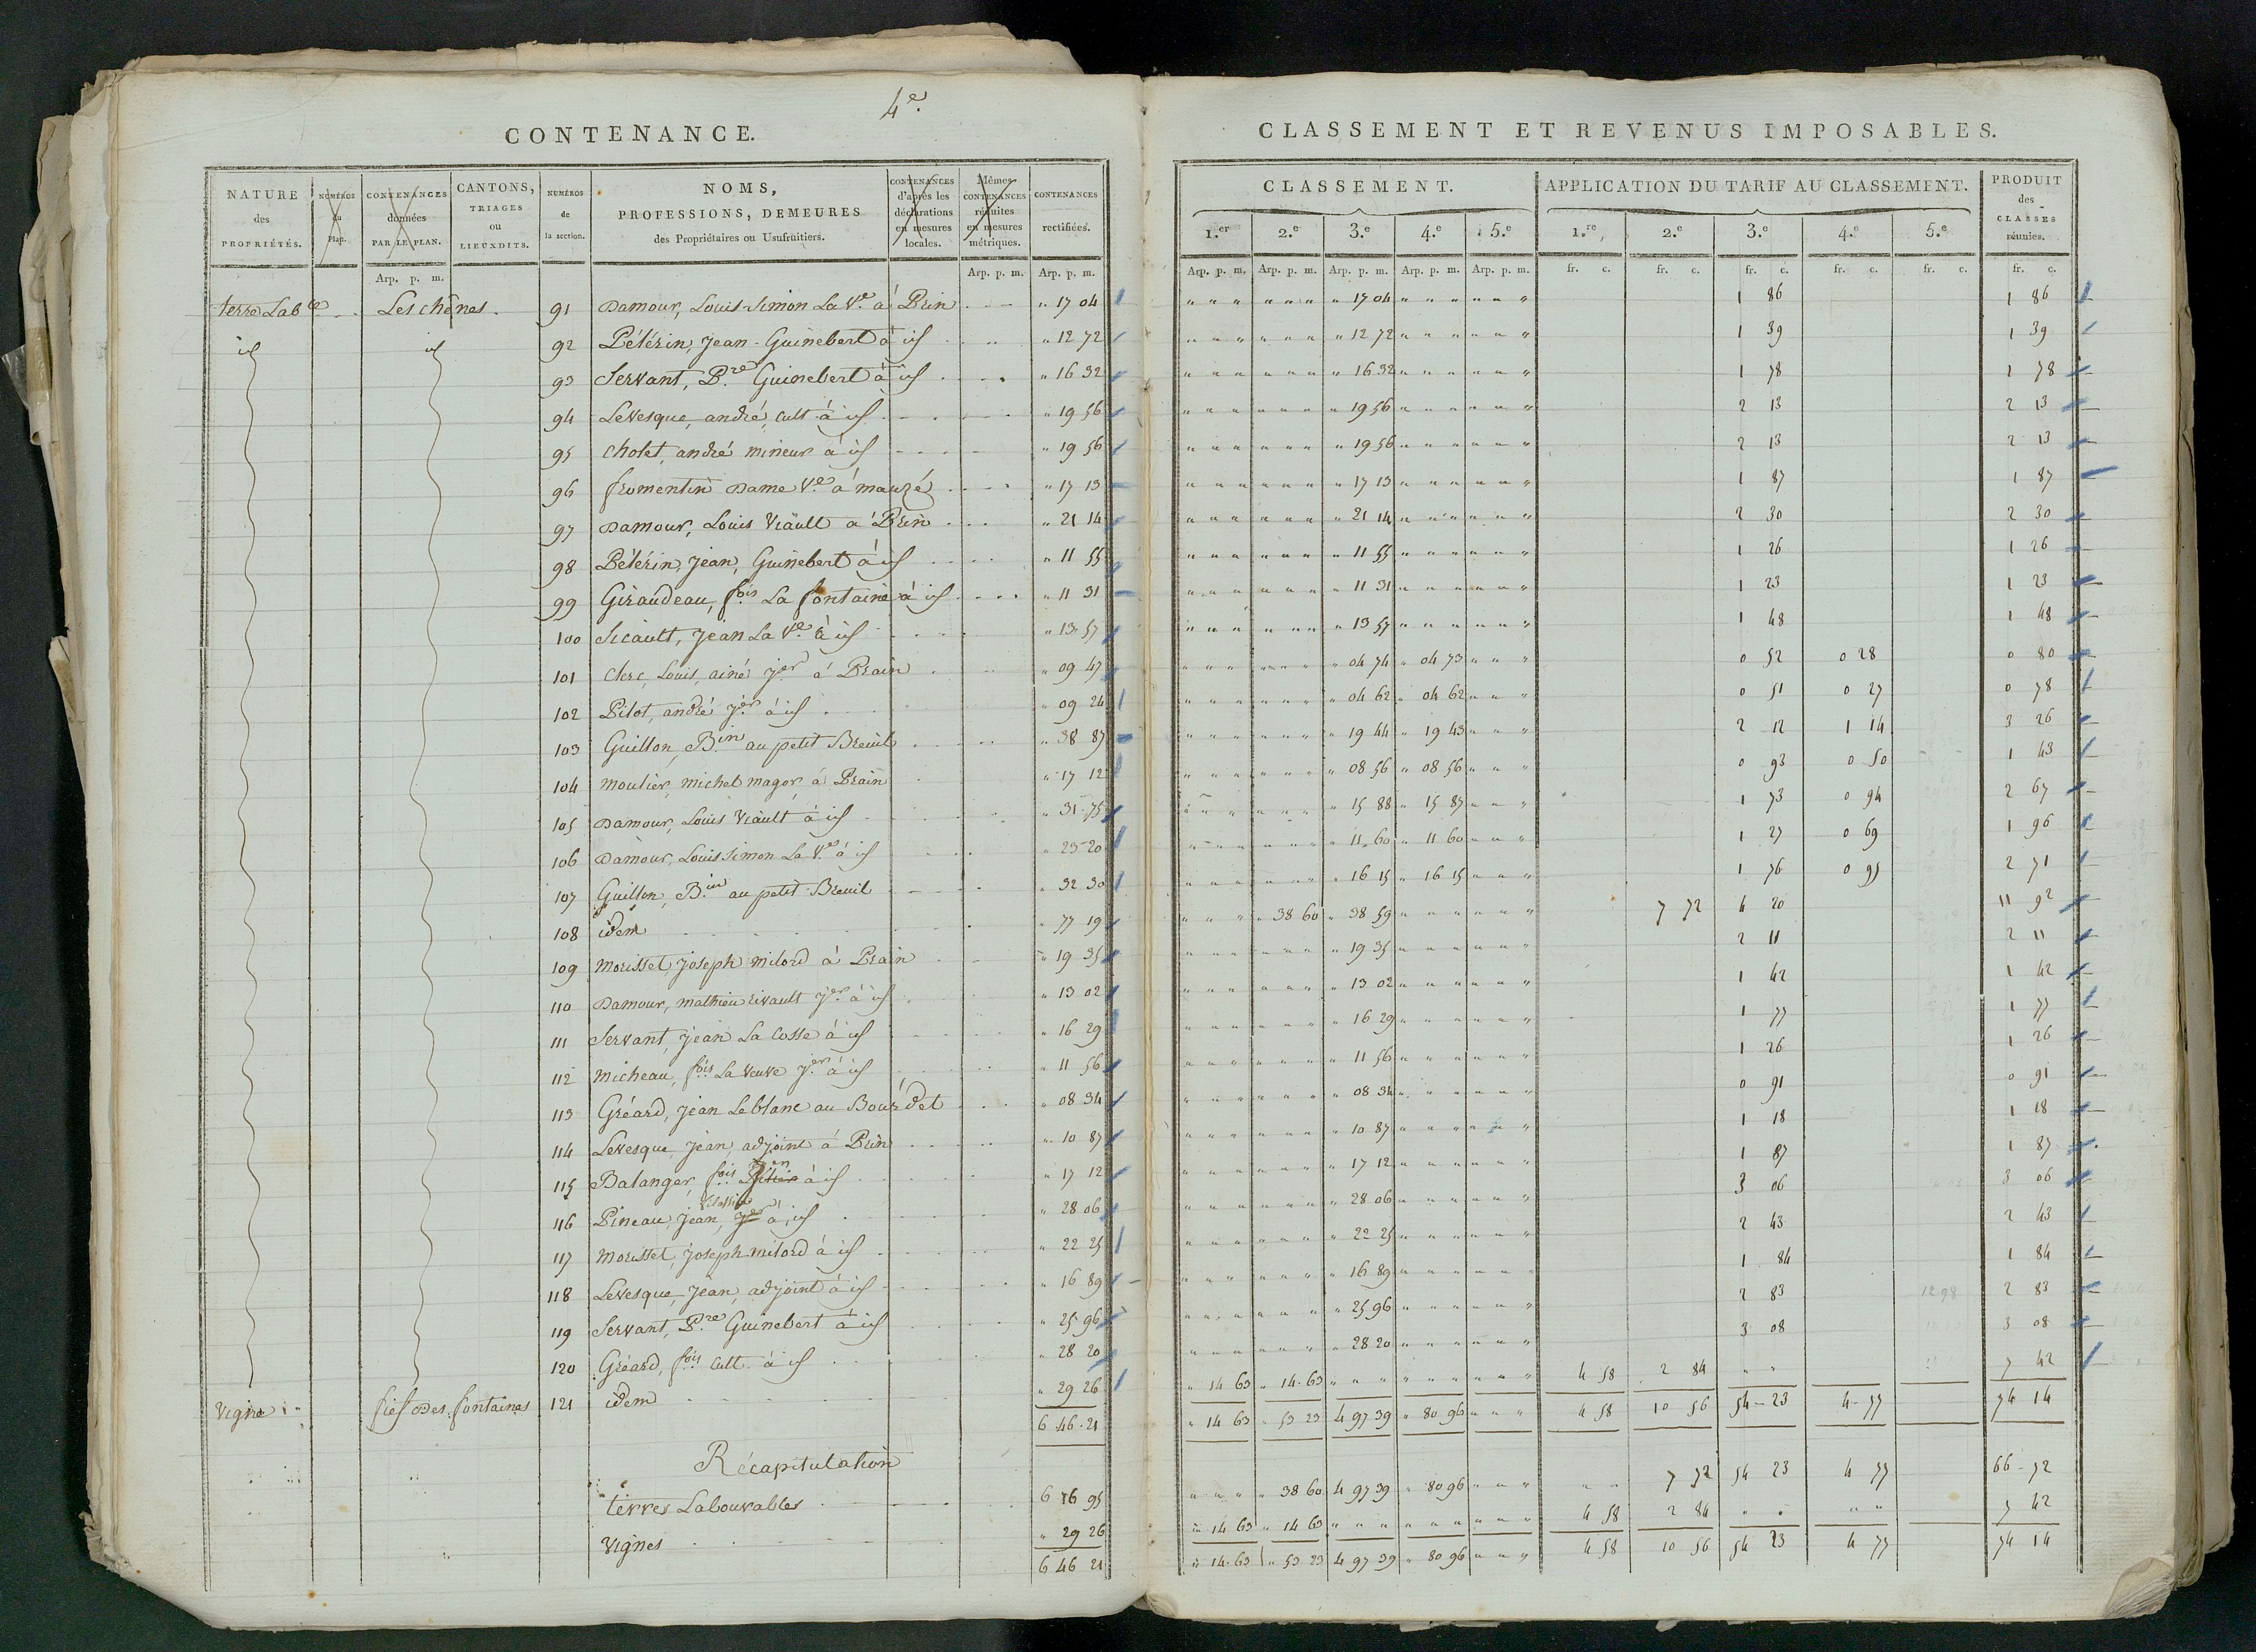 4e.
CONTENANCE.
NATURE des PROPRIÉTÉS. NUMÉROS du Plan. CONTENANCES données PAR LE PLAN. CANTONS, TRIAGES ou LIEUXDITS. NUMÉROS de la section. NOMS, PROFESSIONS, DEMEURES des Propriétaires ou Usufruitiers. CONTENANCES d'après les déclarations en mesures locales. Mêmes CONTENANCES réduites en mesures métriques. CONTENANCES rectifiées.
Arp. p. m. Arp. p. m. Arp. p. m.
terre Lable Les chênes. 91 Damour, Louis-Simon La Ve. à Brin " 17 04
id id 92 Pélérin, Jean-Guinebert à id " 12 72
93 Servant, P.re Guinebert à id " 16 32
94 Levesque, andré, cult à id " 19 56
95 Cholet, andré mineur à id " 19 56
96 fromentin Dame Ve. à mauzé " 17 13
97 Damour, Louis Viault à Brin " 21 14
98 Pélérin, Jean, Guinebert à id " 11 55
99 Giraudeau, fois La fontaine à id " 11 31
100 Sicault, Jean La Ve. à id " 13 57
101 Clerc, Louis, ainé jer à Brain " 09 47
102 Pilot, andré jer à id " 09 24
103 Guillon, B.in au petit Breuil " 38 87
104 moulier, michel magor à Brain " 17 12
105 Damour, Louis Viault à id " 31 75
106 Damour, Louis Simon La Ve. à id " 23 20
107 Guillon, B.in au petit Breuil " 32 30
108 idem " 77 19
109 Morisset, joseph milord à Brain " 19 35
110 Damour, mathieu rivault jer à id " 13 02
111 Servant, Jean La Cosse à id " 16 29
112 Micheau, fois La Veuve jer à id " 11 56
113 Gréard, Jean Leblanc au Bourdet " 08 34
114 Levesque, Jean, adjoint à Brin " 10 87
115 Balanger, fois à id " 17 12
116 Pineau, Jean, jer à id " 28 06
117 Morisset, joseph milord à id " 22 25
118 Levesque, Jean, adjoint à id " 16 89
119 Servant, P.re Guinebert à id " 25 96
120 Gréard, fois cult. à id " 28 20
Vigne fief Des fontaines 121 idem " 29 26
6 46 21
Récapitulation
terres Labourables 6 16 95
Vignes " 29 26
6 46 21
CLASSEMENT ET REVENUS IMPOSABLES.
CLASSEMENT. APPLICATION DU TARIF AU CLASSEMENT. PRODUIT des CLASSES réunies.
1.er 2.e 3.e 4.e 5.e 1.re 2.e 3.e 4.e 5.e
Arp. p. m. Arp. p. m. Arp. p. m. Arp. p. m. Arp. p. m. fr. c. fr. c. fr. c. fr. c. fr. c. fr. c.
" 17 04 1 86 1 86
" 12 72 1 39 1 39
" 16 32 1 78 1 78
" 19 56 2 13 2 13
" 19 56 2 13 2 13
" 17 13 1 87 1 87
" 21 14 2 30 2 30
" 11 55 1 26 1 26
" 11 31 1 23 1 23
" 13 57 1 48 1 48
" 04 74 " 04 73 0 52 0 28 0 80
" 04 62 " 04 62 0 51 0 27 0 78
" 19 44 " 19 43 2 12 1 14 3 26
" 08 56 " 08 56 0 93 0 50 1 43
" 15 88 " 15 87 1 73 0 94 2 67
" 11 60 " 11 60 1 27 0 69 1 96
" 16 15 " 16 15 1 76 0 95 2 71
" 38 60 " 38 59 7 72 4 20 11 92
" 19 35 2 11 2 11
" 13 02 1 42 1 42
" 16 29 1 77 1 77
" 11 56 1 26 1 26
" 08 34 0 91 0 91
" 10 87 1 18 1 18
" 17 12 1 87 1 87
" 28 06 3 06 3 06
" 22 25 2 43 2 43
" 16 89 1 84 1 84
" 25 96 2 83 2 83
" 28 20 3 08 3 08
" 14 63 " 14 63 4 58 2 84 " " 7 42
" 14 63 " 53 23 4 97 39 " 80 96 " " " 4 58 10 56 54 23 4 77 74 14
" " " " 38 60 4 97 39 " 80 96 " " " " " 7 72 54 23 4 77 66 72
" 14 63 " 14 63 " " " " " " " " " 4 58 2 84 " " " " 7 42
" 14 63 " 53 23 4 97 39 " 80 96 " " " 4 58 10 56 54 23 4 77 74 14